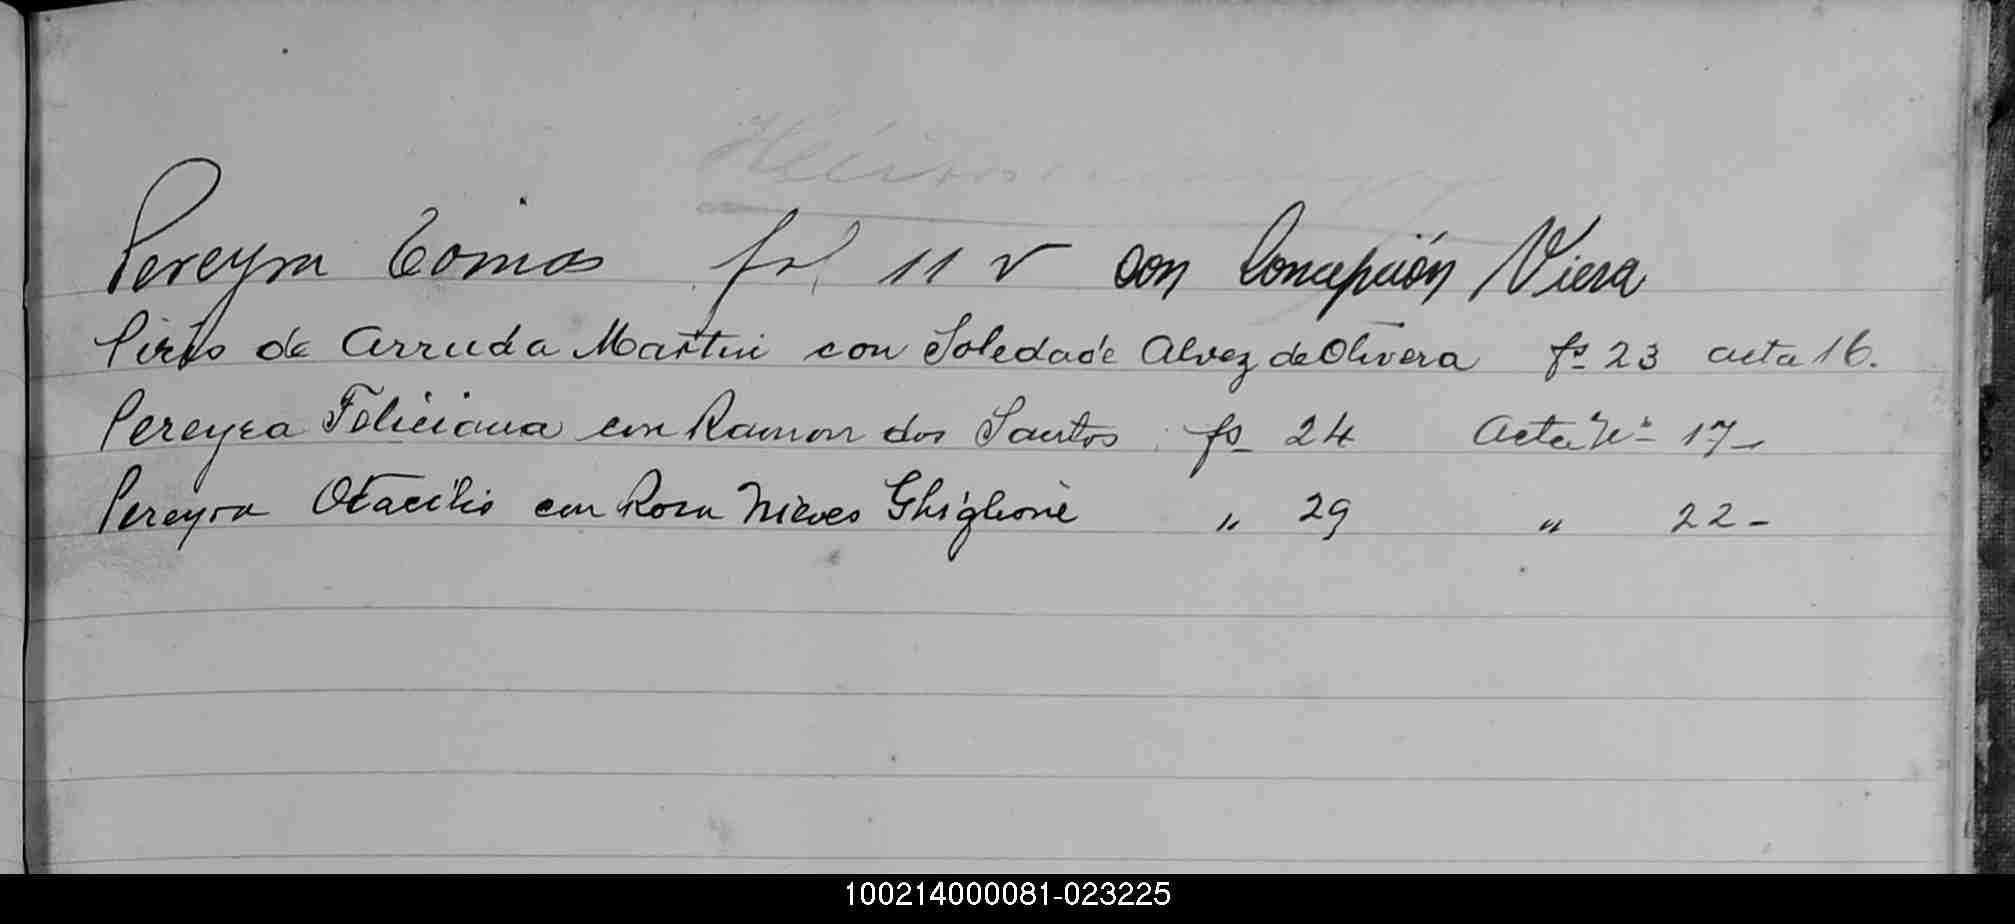 Pereyra Tomas fol 11 v con Concepción Viera
Pires de Arruda Martin con Soledade Alvez de Olivera fs 23 acta 16.
Pereyra Feliciana con Ramon dos Santos fs 24 Acta Nº 17-
Pereyra Otacilio con Rosa Nieves Ghiglione " 29 " 22-
100214000081-023225